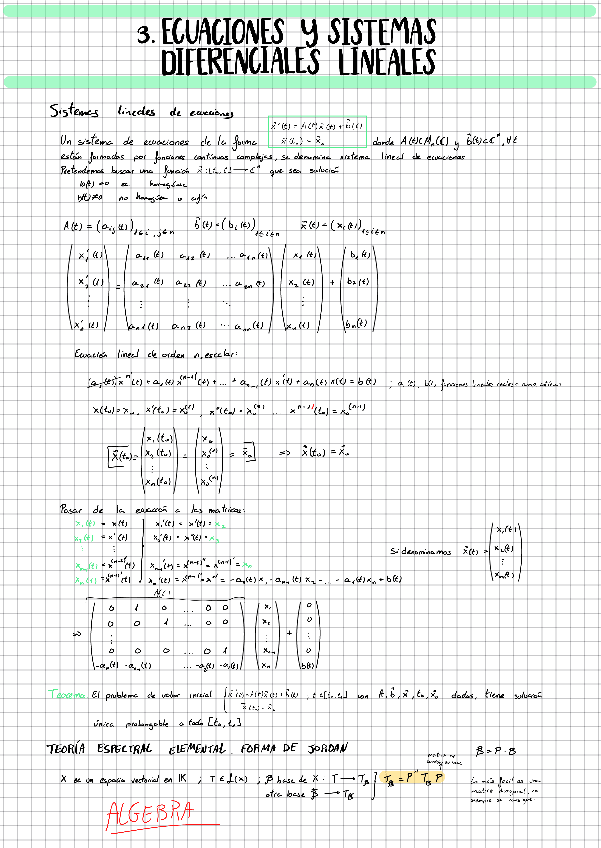 3. ECUACIONES Y SISTEMAS
DIFERENCIALES LINEALES
Sistemas lineales de ecuaciones
Un sistema de ecuaciones de la forma x̄'(t) = A(t)x̄(t) + b̄(t) donde A(t)∈Mₙ(ℂ) y b̄(t)∈ℂⁿ, ∀t
x̄(t₀) = x̄₀
están formados por funciones continuas complejas, se denomina sistema lineal de ecuaciones
Pretendemos buscar una función x̄: [t₀, t₁] → ℂⁿ que sea solución
b(t) = 0 homogéneo
b(t) ≠ 0 no homogéneo o afín
A(t) = (aᵢⱼ(t))₁≤i,j≤n b̄(t) = (bᵢ(t))₁≤i≤n x̄(t) = (xᵢ(t))₁≤i≤n
x₁'(t) a₁₁(t) a₁₂(t) ... a₁ₙ(t) x₁(t) b₁(t)
x₂'(t) = a₂₁(t) a₂₂(t) ... a₂ₙ(t) x₂(t) + b₂(t)
⋮ ⋮ ⋮ ⋱ ⋮ ⋮
xₙ'(t) aₙ₁(t) aₙ₂(t) ... aₙₙ(t) xₙ(t) bₙ(t)
Ecuación lineal de orden n, escalar:
a₀(t)x⁽ⁿ⁾(t) + a₁(t)x⁽ⁿ⁻¹⁾(t) + ... + aₙ₋₁(t)x'(t) + aₙ(t)x(t) = b(t) ; funciones
x(t₀) = x₀, x'(t₀) = x₀⁽¹⁾, x''(t₀) = x₀⁽²⁾ ... x⁽ⁿ⁻¹⁾(t₀) = x₀⁽ⁿ⁻¹⁾
x₁(t₀) x₀
x̄(t₀) = x₂(t₀) = x₀⁽¹⁾ = x̄₀ ⇒ x̄(t₀) = x̄₀
⋮ ⋮
xₙ(t₀) x₀⁽ⁿ⁾
Pasar de la ecuación a las matrices:
x₁(t) = x(t) x₁'(t) = x'(t) = x₂
x₂(t) = x'(t) x₂'(t) = x''(t) = x₃
⋮ ⋮
xₙ₋₁(t) = x⁽ⁿ⁻²⁾(t) xₙ₋₁'(t) = x⁽ⁿ⁻²⁾' = x⁽ⁿ⁻¹⁾ = xₙ
xₙ(t) = x⁽ⁿ⁻¹⁾(t) xₙ'(t) = x⁽ⁿ⁻¹⁾' = x⁽ⁿ⁾ = -aₙ(t)x₁ - aₙ₋₁(t)x₂ - ... - a₁(t)xₙ + b(t)
Si denominamos x̄(t) = x₁(t) x₂(t) ⋮ xₙ(t)
A(t)
0 1 0 ... 0 0 x₁ 0
0 0 1 ... 0 0 x₂ 0
⇒ ⋮ ⋮ + ⋮
0 0 0 ... 0 1 xₙ₋₁ 0
-aₙ(t) -aₙ₋₁(t) ... -a₂(t) -a₁(t) xₙ b(t)
Teorema: El problema de valor inicial x̄'(t) = A(t)x̄(t) + b̄(t) , t∈[t₀, t₁] con A, b̄, x̄, t₀, x̄₀ dados, tiene solución
x̄(t₀) = x̄₀
única prolongable a todo [t₀, t₁]
TEORÍA ESPECTRAL ELEMENTAL. FORMA DE JORDAN
matriz de
B̃ = P · B
X es un espacio vectorial en K ; T ∈ L(X) ; B base de X · T → T_B T_B̃ = P⁻¹ T_B P
otra base B̃ → T_B̃
Lo más fácil es una
matriz diagonal, no
siempre se consigue
ALGEBRA